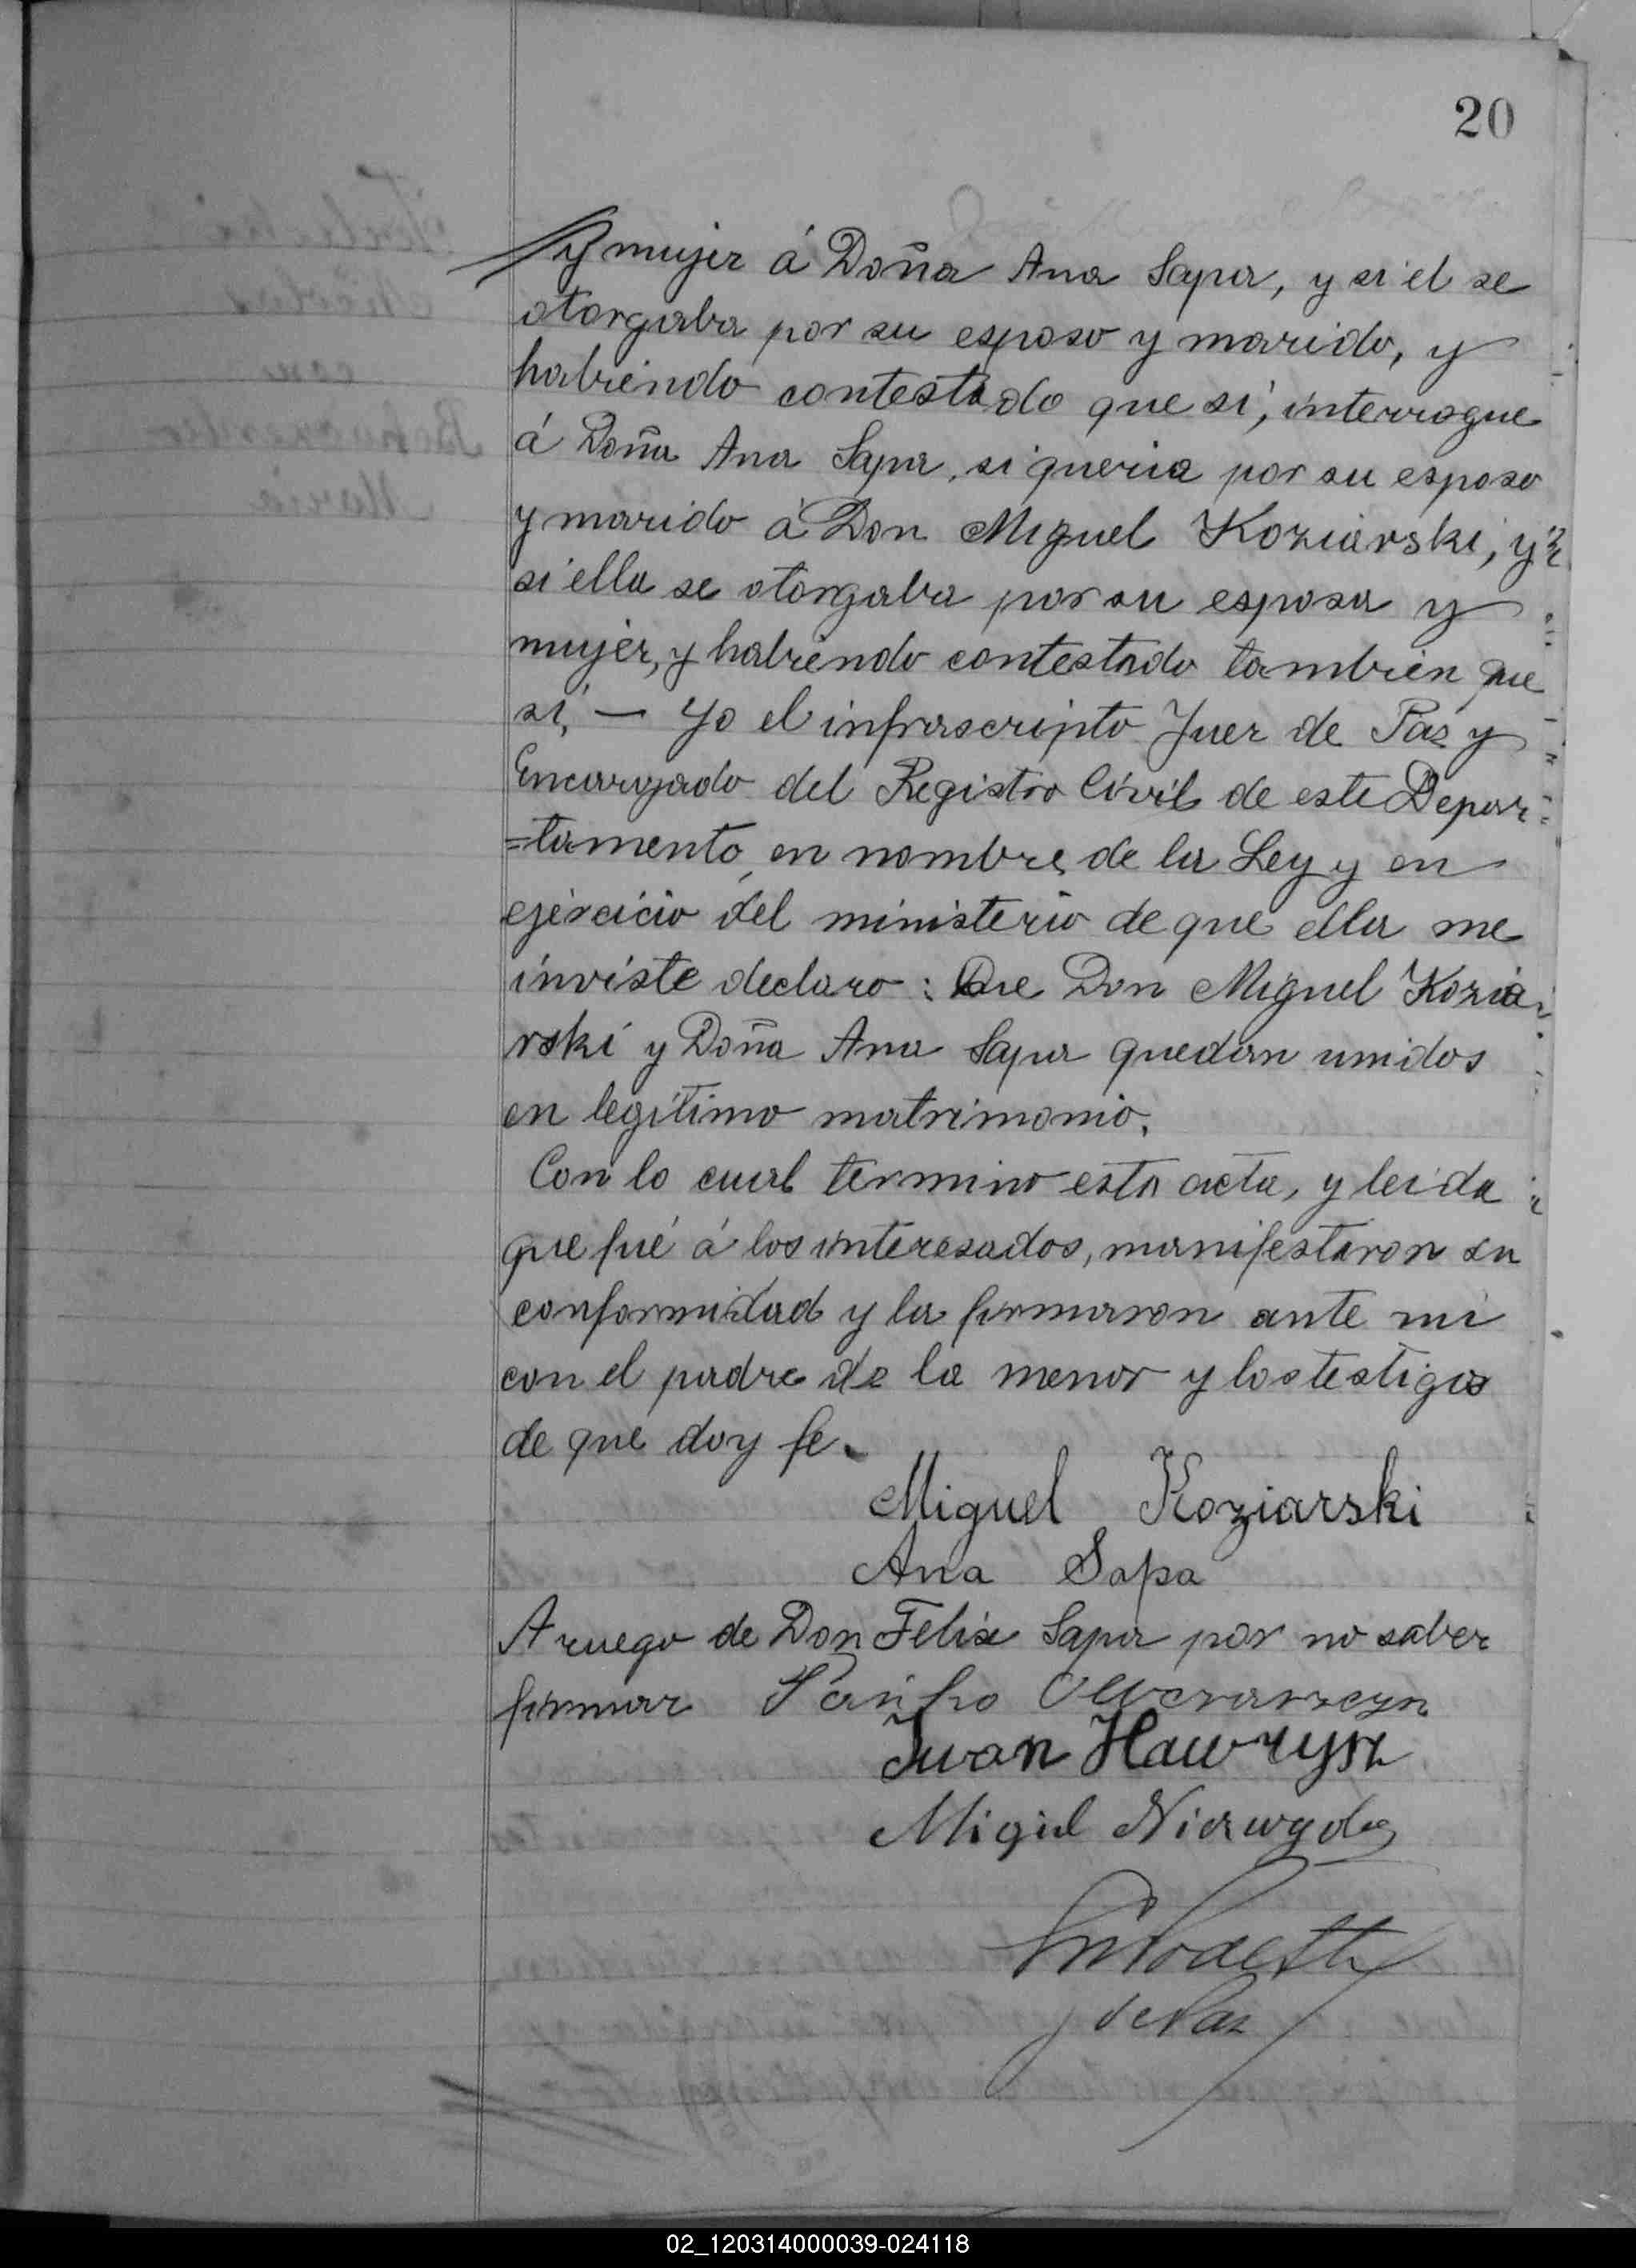 20
y mujer á Doña Ana Sapa, y si él se
otorgaba por su esposo y marido, y
habiendo contestado que sí, interrogue
á Doña Ana Sapa, si queria por su esposo
y marido á Don Miguel Koziarski, y
si ella se otorgaba por su esposa y
mujer, y habiendo contestado tambien que
sí, — Yo el infrascripto Juez de Paz y
Encargado del Registro Civil de este Depar-
=tamento, en nombre de la Ley y en
ejercicio del ministerio de que ella me
inviste declaro: Que Don Miguel Kozia-
rski y Doña Ana Sapa quedan unidos
en legítimo matrimonio.
Con lo cual termino esta acta, y leida
que fué á los interesados, manifestaron su
conformidad y la firmaron ante mi
con el padre de la menor y los testigos
de que doy fe.
Miguel Koziarski
Ana Sapa
A ruego de Don Felix Sapa por no saber
firmar
Iwan Hawrysz
de Paz
02_120314000039-024118